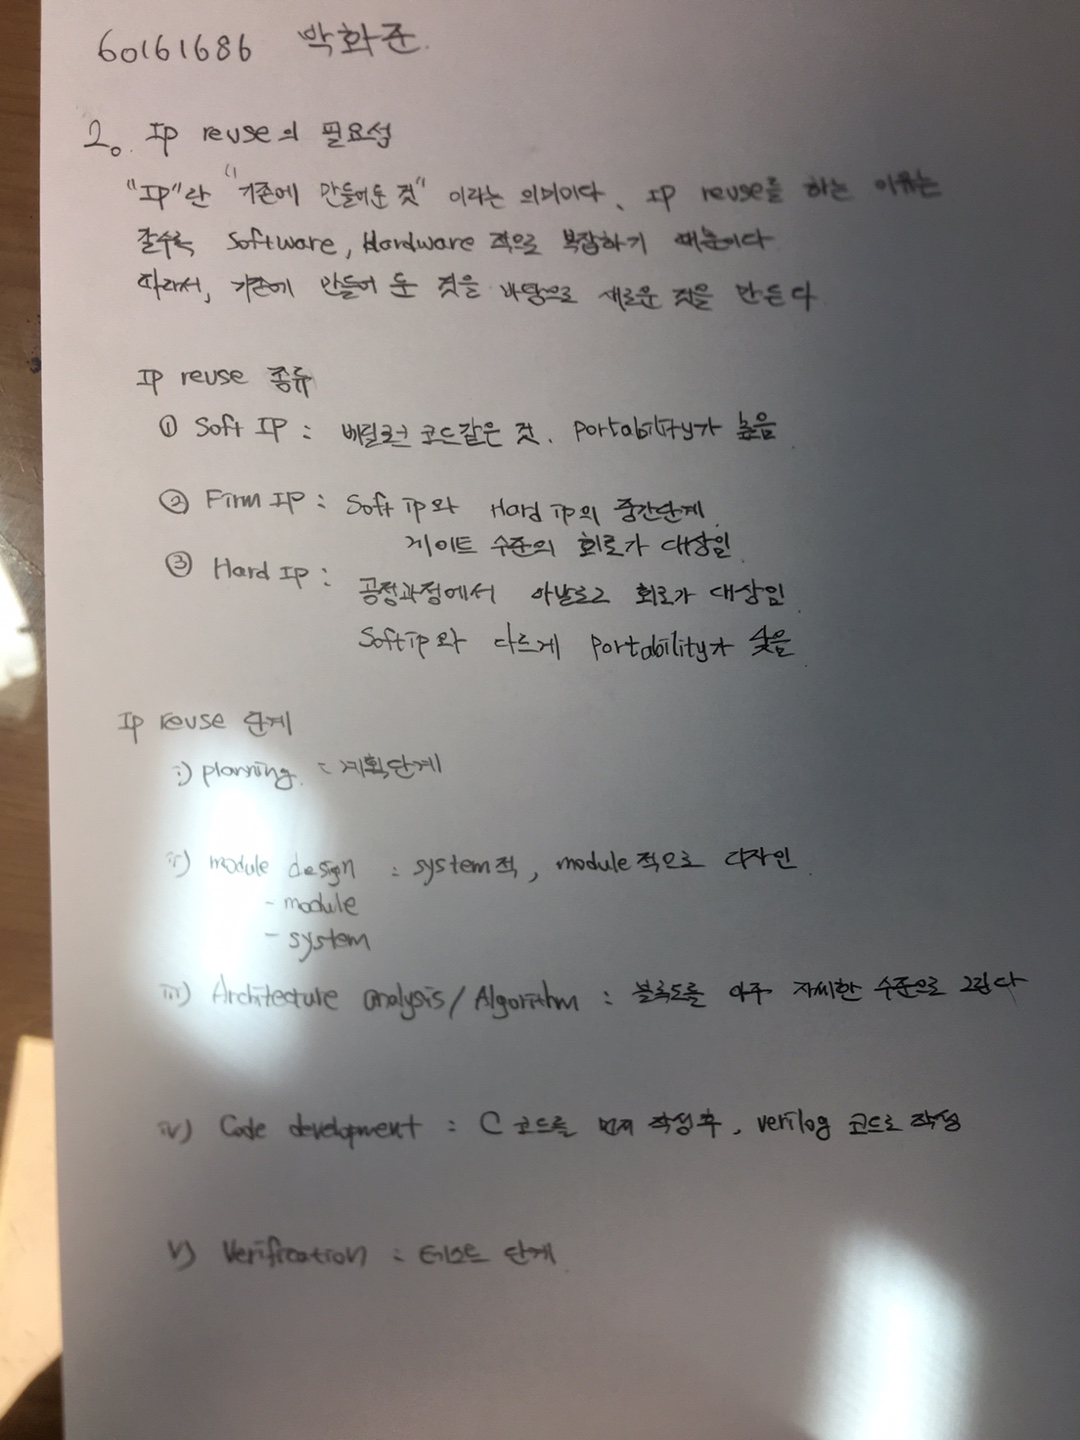 60161686 박화준.
2. Ip reuse의 필요성
"IP"란 "기존에 만들어둔 것" 이라는 의미이다. IP reuse를 하는 이유는
갈수록 Software, Hardware 적으로 복잡하기 때문이다.
따라서, 기존에 만들어 둔 것을 바탕으로 새로운 것을 만든다
IP reuse 종류
① Soft IP : 베릴로그 코드같은 것. Portability가 높음
② Firm IP : Soft ip와 Hard ip의 중간단계.
게이트 수준의 회로가 대상임.
③ Hard Ip : 공정과정에서 아날로그 회로가 대상임.
Soft ip와 다르게 Portability가 낮음
Ip reuse 단계
i) planning. : 계획단계
ii) module design : system적, module적으로 디자인.
- module
- system
iii) Architecture analysis / Algorithm : 블록도를 아주 자세한 수준으로 그린다
iv) Code development : C 코드를 먼저 작성 후, verilog 코드로 작성
v) Verification : 테스트 단계